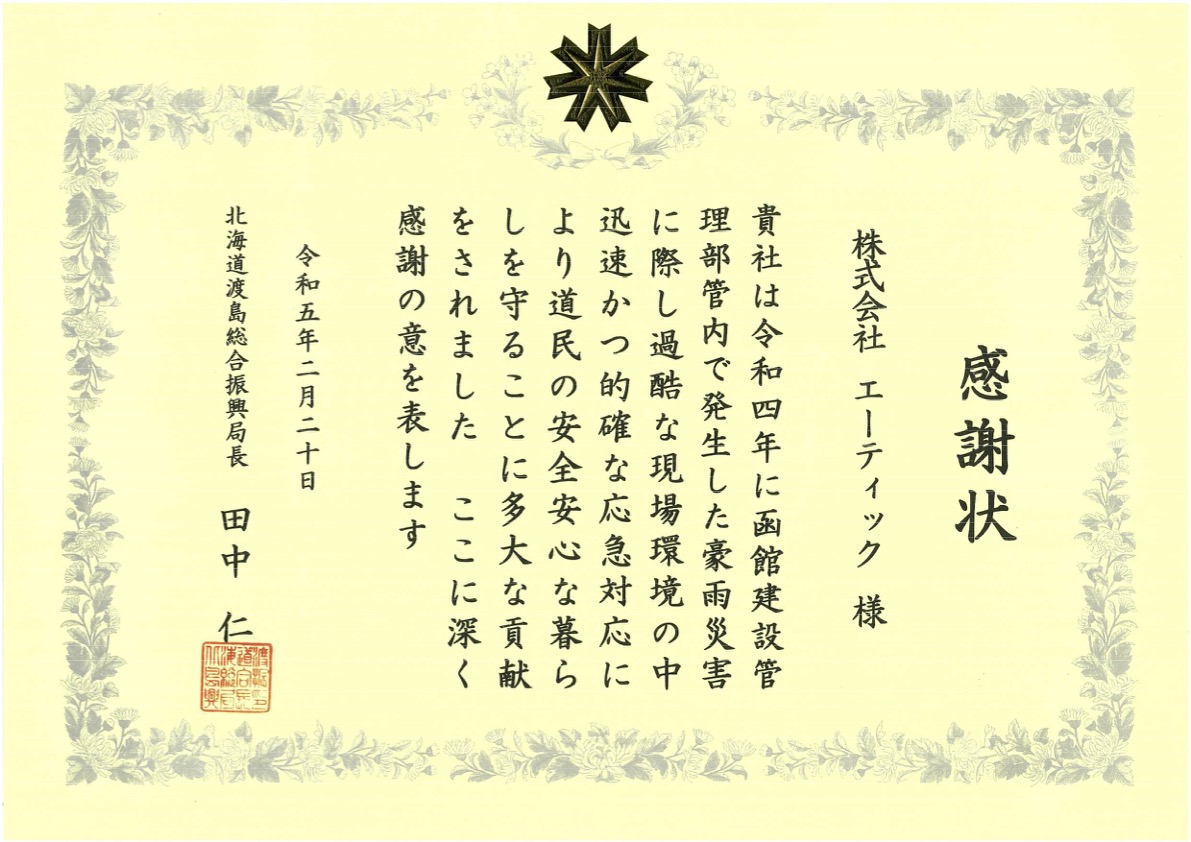 感謝状
株式会社 エーティック 様
貴社は令和四年に函館建設管
理部管内で発生した豪雨災害
に際し過酷な現場環境の中
迅速かつ的確な応急対応に
より道民の安全安心な暮ら
しを守ることに多大な貢献
をされました ここに深く
感謝の意を表します
令和五年二月二十日
北海道渡島総合振興局長 田中 仁